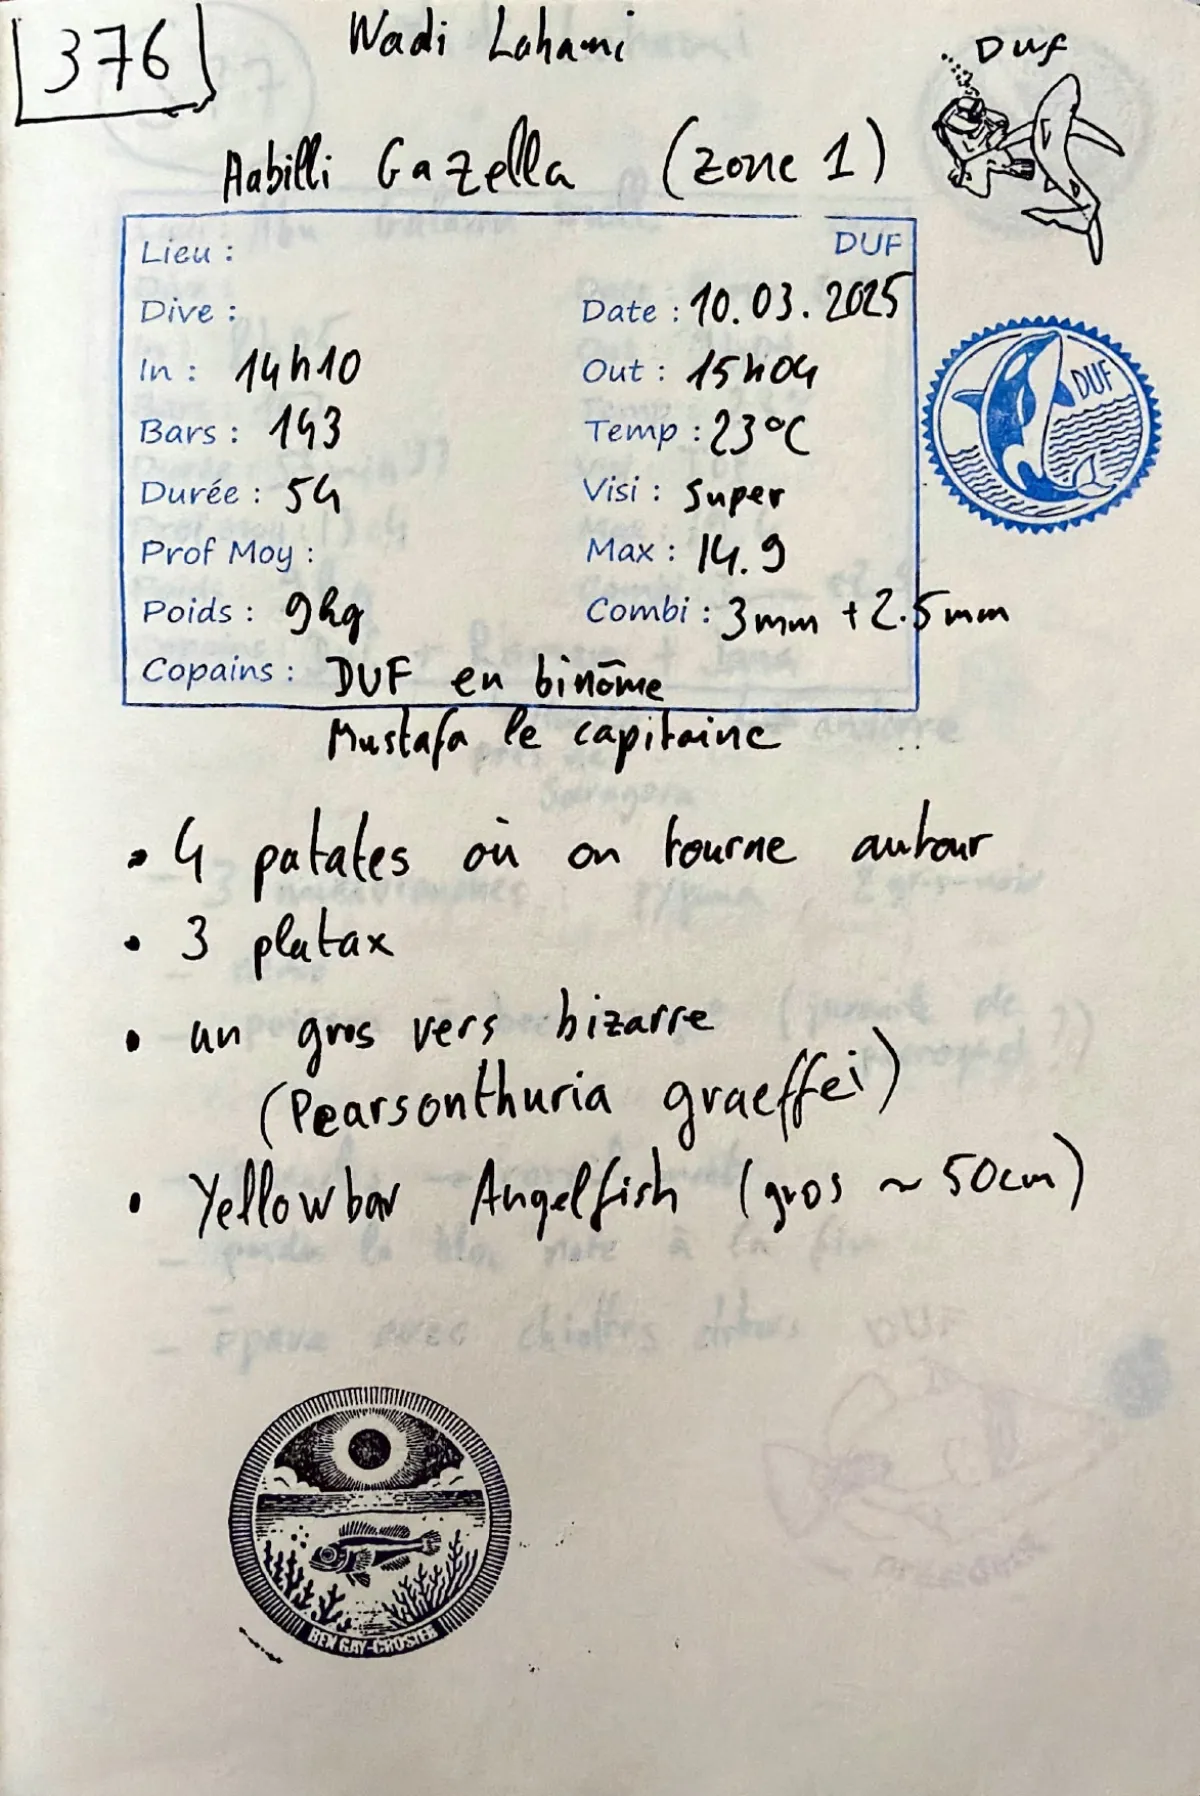 376
Wadi Lahami
Duf
Aabilli Gazella (zone 1)
Lieu : DUF
Dive : Date : 10.03.2025
In : 14h10 Out : 15h04
Bars : 143 Temp : 23°C
Durée : 54 Visi : Super
Prof Moy : Max : 14.9
Poids : 9kg Combi : 3mm + 2.5mm
Copains : DUF en binôme
Mustafa le capitaine
DUF
• 4 patates où on tourne autour
• 3 platax
• un gros vers bizarre
(Pearsonthuria graeffei)
• Yellowbar Angelfish (gros ~ 50cm)
BEN GAY-CROSIER